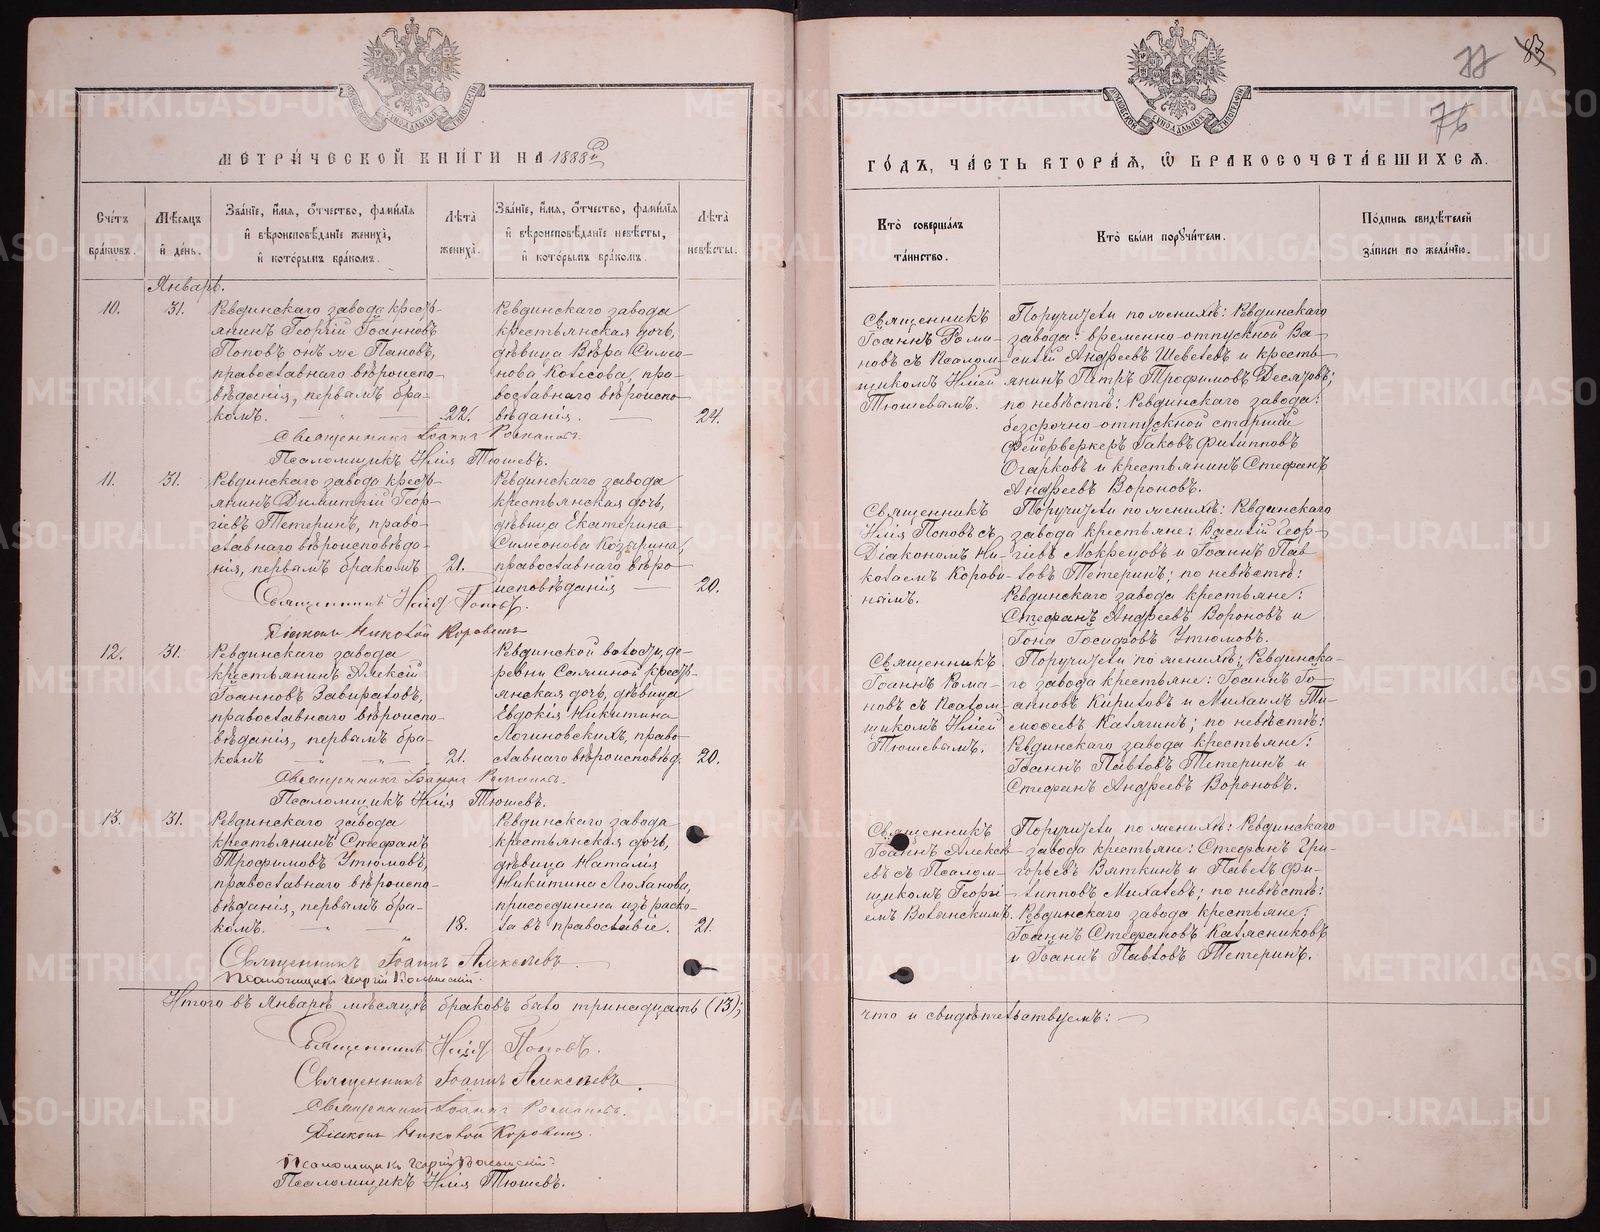 МЕТРИЧЕСКОЙ КНИГИ НА 1888й
Счетъ браковъ.
Мѣсяцъ и день.
Званіе, имя, отчество, фамилія и вѣроисповѣданіе жениха, и которымъ бракомъ.
Лѣта жениха.
Званіе, имя, отчество, фамилія и вѣроисповѣданіе невѣсты, и которымъ бракомъ.
Лѣта невѣсты.
Январь.
10.
31.
Ревдинскаго завода кресть-
янинъ Георгій Іоанновъ
Поповъ онъ же Пановъ,
православнаго вѣроиспо-
вѣданія, первымъ бра-
комъ.
22.
Ревдинскаго завода
крестьянская дочь,
дѣвица Вѣра Симео-
нова Колесова, пра-
вославнаго вѣроиспо-
вѣданія.
24.
Священникъ Іоаннъ Романовъ.
Псаломщикъ Илія Тюшевъ.
11.
31.
Ревдинскаго завода кресть-
янинъ Димитрій Геор-
гіевъ Тетеринъ, право-
славнаго вѣроисповѣда-
нія, первымъ бракомъ
21.
Ревдинскаго завода
крестьянская дочь,
дѣвица Екатерина
Симеонова Козырина,
православнаго вѣро-
исповѣданія
20.
Священникъ Илія Поповъ.
Діаконъ Николай Коровинъ
12.
31.
Ревдинскаго завода
крестьянинъ Алексій
Іоанновъ Завираловъ,
православнаго вѣроиспо-
вѣданія, первымъ бра-
комъ
21.
Ревдинской волости, де-
ревни Саминой кресть-
янская дочь, дѣвица
Евдокія Никитина
Логиновскихъ, право-
славнаго вѣроисповѣд.
20.
Священникъ Іоаннъ Романовъ.
Псаломщикъ Илія Тюшевъ.
13.
31.
Ревдинскаго завода
крестьянинъ Стефанъ
Трофимовъ Утюмовъ,
православнаго вѣроиспо-
вѣданія, первымъ бра-
комъ.
18.
Ревдинскаго завода
крестьянская дочь,
дѣвица Наталія
Никитина Люханова,
присоединена изъ раско-
ла въ православіе.
21.
Священникъ Іоаннъ Алексѣевъ
Псаломщикъ Георгій
Итого въ Январѣ мѣсяцѣ браковъ было тринадцать (13);
Священникъ Илія Поповъ.
Священникъ Іоаннъ Алексѣевъ.
Священникъ Іоаннъ Романовъ.
Діаконъ Николай Коровинъ.
Псаломщикъ Георгій
Псаломщикъ Илія Тюшевъ.
77
83
76
ГОДЪ, ЧАСТЬ ВТОРАЯ, Ѡ БРАКОСОЧЕТАВШИХСЯ.
Кто совершалъ таинство.
Кто были поручители.
Подпись свидѣтелей записи по желанію.
Священникъ
Іоаннъ Рома-
новъ съ Псалом-
щикомъ Иліей
Тюшевымъ.
Поручители по женихѣ: Ревдинскаго
завода: временно-отпускной Ва-
силій Андреевъ Шевелевъ и кресть-
янинъ Петръ Трофимовъ Десятовъ;
по невѣстѣ: Ревдинскаго завода:
безсрочно-отпускной старшій
фейерверкеръ Іаковъ Филипповъ
Огарковъ и крестьянинъ Стефанъ
Андреевъ Вороновъ.
Священникъ
Илія Поповъ съ
Діакономъ Ни-
колаемъ Корови-
нымъ.
Поручители по женихѣ: Ревдинскаго
завода крестьяне: Василій Геор-
гіевъ Мокрецовъ и Іоаннъ Пав-
ловъ Тетеринъ; по невѣстѣ:
Ревдинскаго завода крестьяне:
Стефанъ Андреевъ Вороновъ и
Іона Іосифовъ Утюмовъ.
Священникъ
Іоаннъ Рома-
новъ съ Псалом-
щикомъ Иліей
Тюшевымъ.
Поручители по женихѣ: Ревдинска-
го завода крестьяне: Іоаннъ Іо-
анновъ Кириловъ и Михаилъ Ти-
моѳеевъ Калягинъ; по невѣстѣ:
Ревдинскаго завода крестьяне:
Іоаннъ Павловъ Тетеринъ и
Стефанъ Андреевъ Вороновъ.
Священникъ
Іоаннъ Алексѣ-
евъ съ Псалом-
щикомъ Георгі-
емъ
Поручители по женихѣ: Ревдинскаго
завода крестьяне: Стефанъ Гри-
горьевъ Вяткинъ и Павелъ Фи-
липповъ Михалевъ; по невѣстѣ:
Ревдинскаго завода крестьяне:
Іоаннъ Стефановъ Калясниковъ
и Іоаннъ Павловъ Тетеринъ.
что и свидѣтельствуемъ:
METRIKI.GASO-URAL.RU